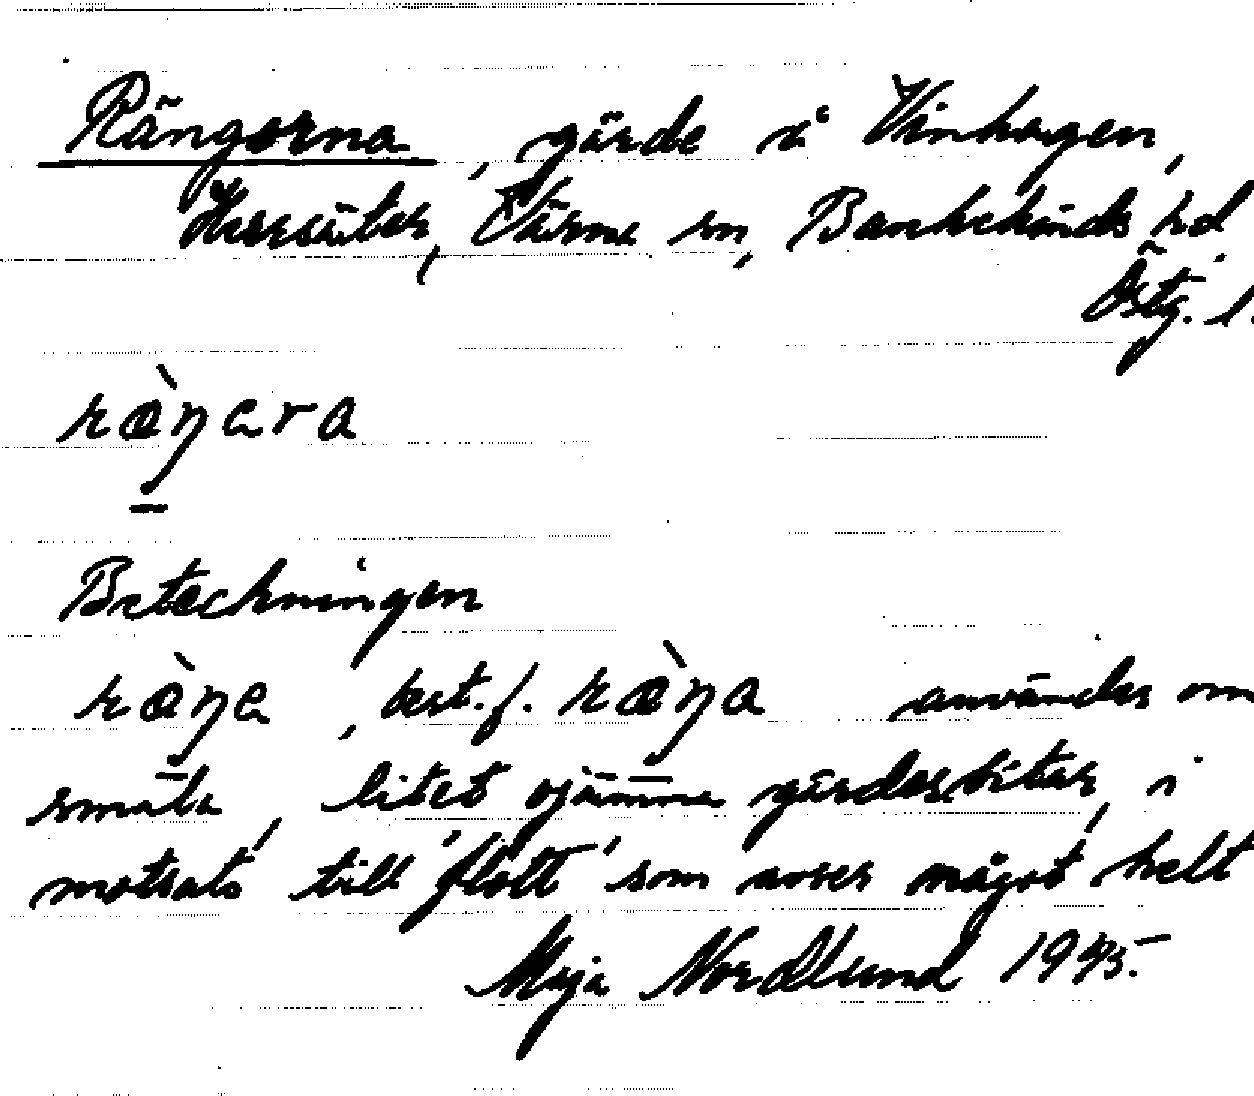 Rängorna, gärde å Vinhagen,
Herrsäter, Värna sn, Bankekinds hd
Östg. l.
ràŋɐra
Beteckningen
ràŋe, best. f. ràŋa användes om
små, litet ojämna gärdesbitar, i
motsats till 'flott' som avser något helt
Maja Nordlund 1945.